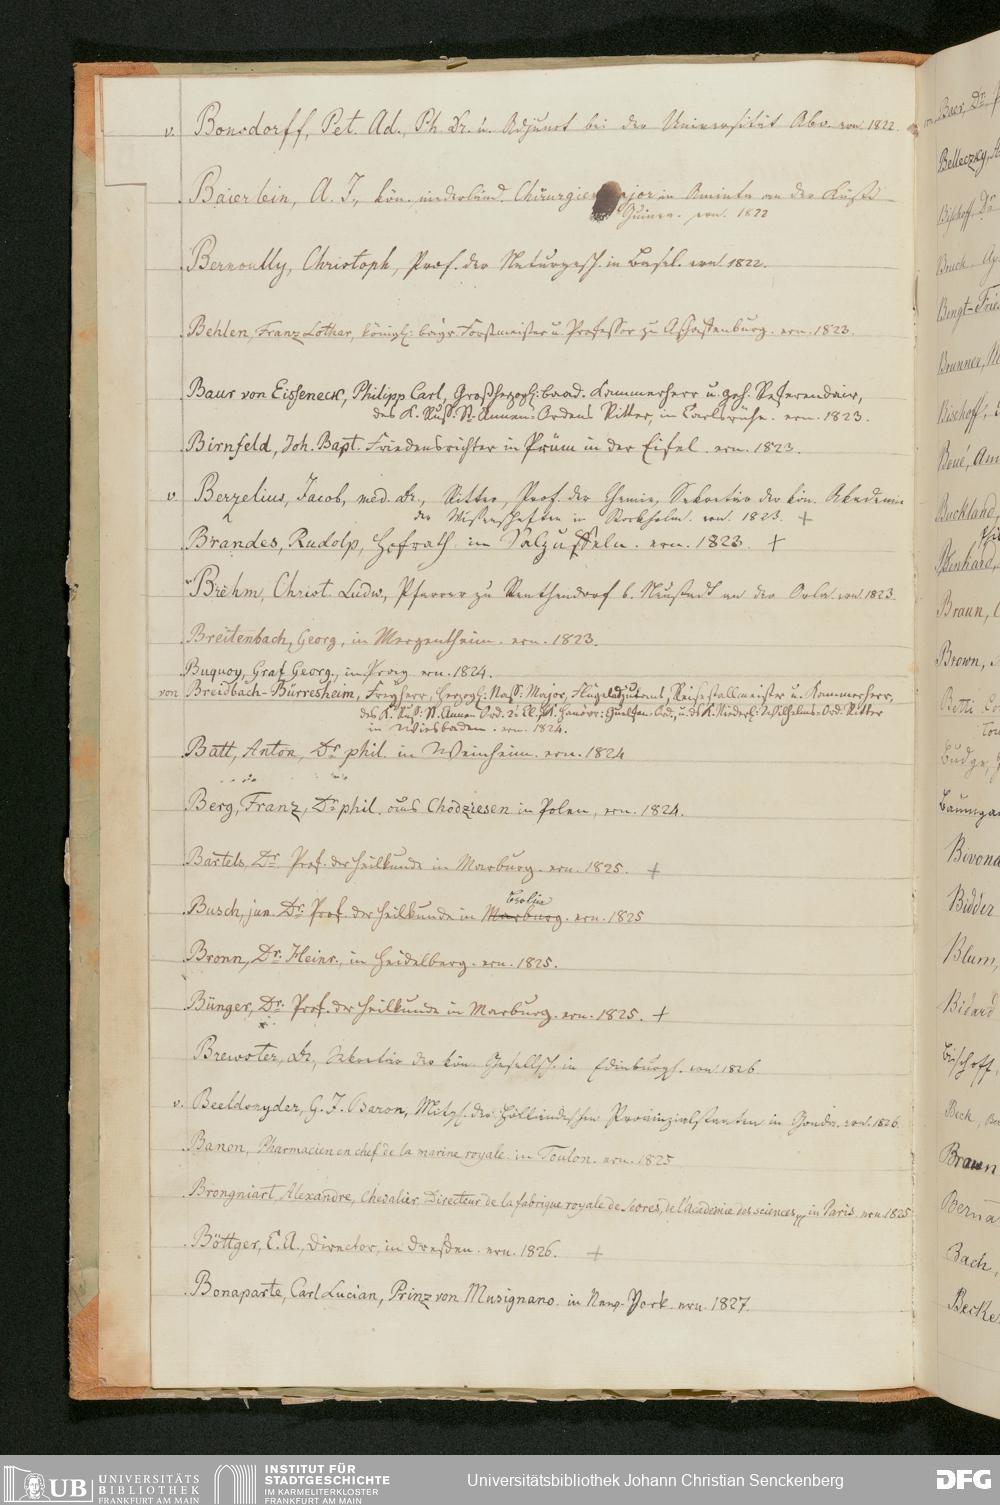 v. Bonsdorff, Pet. Ad., Ph. Dr. u. Adjunct bei der Universität Abo. ern. 1822.
Baierlein, A. J., kön. niederländ. Chirurgien major in Aminta an der Küste
Guinea. ern. 1822
Bernoully, Christoph, Prof. der Naturgesch. in Basel. ern. 1822.
Behlen, Franz Lothar, königl: bayr. Forstmeister u. Professor zu Aschaffenburg. ern. 1823.
Baur von Eisseneck, Philipp Carl, Großherzogl: baad. Kammerherr u. geh. Referendair,
des K. Russ. St. Annen-Ordens Ritter, in Carlsruhe. ern. 1823.
Birnfeld, Joh. Bapt. Friedensrichter in Prüm in der Eifel. ern. 1823.
v. Berzelius, Jacob, med. Dr., Ritter, Prof. der Chemie, Sekretär der kön. Akademie
der Wissenschaften in Stockholm. ern. 1823. +
Brandes, Rudolp, Hofrath in Salzuffeln. ern. 1823. +
Brehm, Christ. Ludw., Pfarrer zu Renthendorf b. Neustadt an der Orla. ern. 1823
Breitenbach, Georg, in Mergentheim. ern. 1823.
Buquoy, Graf Georg, in Prag ern. 1824.
von Breidbach-Bürresheim, Freyherr, herzogl: Nass. Major, Flügeladjutant, Reisestallmeister u. Kammerherr,
des K. Russ: St. Annen Ord. 2. Cl., K. Hanövr: Guelfen-Ord. u. des K. Niederl: Wilhelms-Ord. Ritter
in Wiesbaden. ern. 1824.
Batt, Anton, Dr. phil. in Weinheim. ern. 1824
Berg, Franz, Dr. phil. aus Chodziesen in Polen, ern. 1824.
Bartels, Dr. Prof. der Heilkunde in Marburg. ern. 1825. +
Berlin
Busch, jun. Dr. Prof. der Heilkunde in Marburg. ern. 1825
Bronn, Dr. Heinr., in Heidelberg. ern. 1825.
Bünger, Dr. Prof. der Heilkunde in Marburg. ern. 1825. +
Brewster, Dr., Sekretär der kön. Gesellsch. in Edinburgh. ern. 1826.
v. Beeldsnyder, G. J. Baron, Mitgl. der Holländischen Provinzialstaaten in Gouda. ern. 1826.
Banon, Pharmacien en chef de la marine royale in Toulon. ern. 1825
Brongniart, Alexandre, Chevalier, Directeur de la fabrique royale de Sevres, de l'Academie des sciences, in Paris. ern. 1825
Böttger, C. A., Director, in Dresden. ern. 1826. +
Bonaparte, Carl Lucian, Prinz von Musignano in New-York. ern. 1827.
Baer, Dr.
Belleczky,
Bischoff, Dr
Bruch,
Bengt-Fries
Brunner,
Bischoff,
Boué, Am
Buckland,
Braun,
Brown,
Betti
Budge,
Baumga
Bivona
Bidder
Blum,
Bischoff,
Beck,
Braun
Berna
Bach,
Becke
UB UNIVERSITÄTS
BIBLIOTHEK
FRANKFURT AM MAIN
INSTITUT FÜR
STADTGESCHICHTE
IM KARMELITERKLOSTER
FRANKFURT AM MAIN
Universitätsbibliothek Johann Christian Senckenberg
DFG